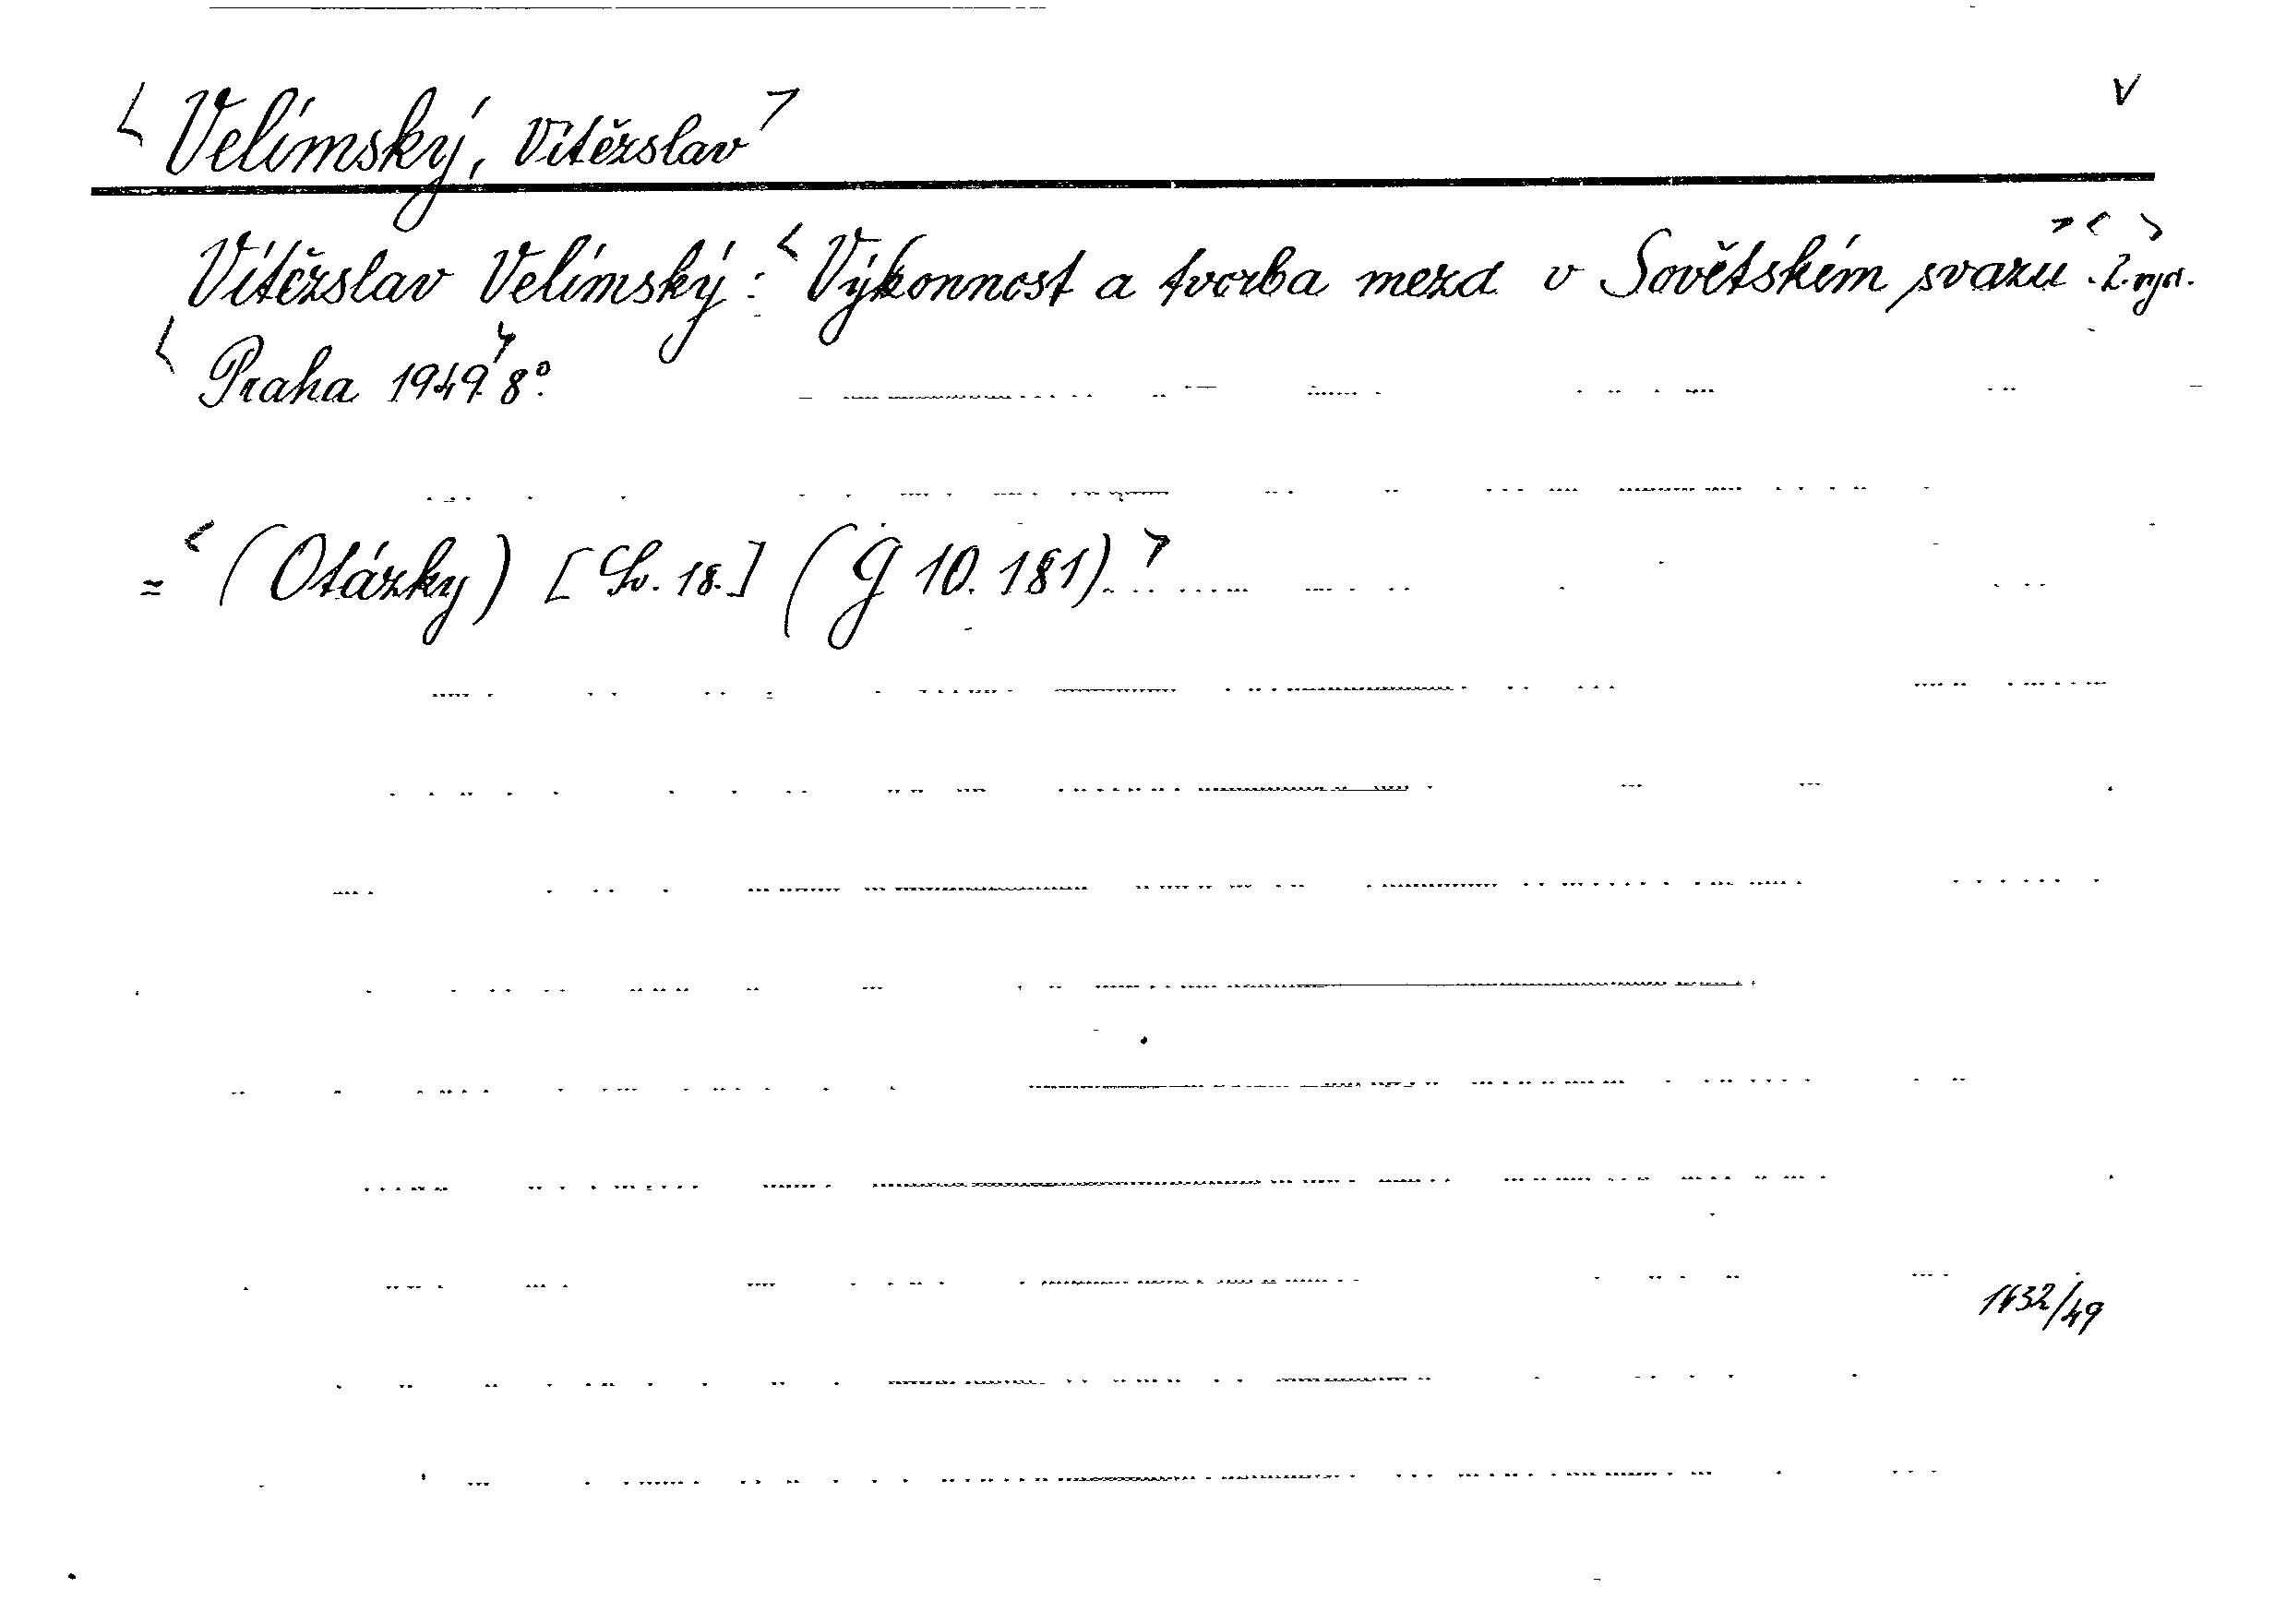 <Velímský, Vítězslav> v
Vítězslav Velímský: <Výkonnost a tvorba mezd v Sovětském svazu><. 2. vyd.>
<Praha 1949.> 8°.
= <(Otázky) [Sv. 18.] (g 10.181).>
1632/49